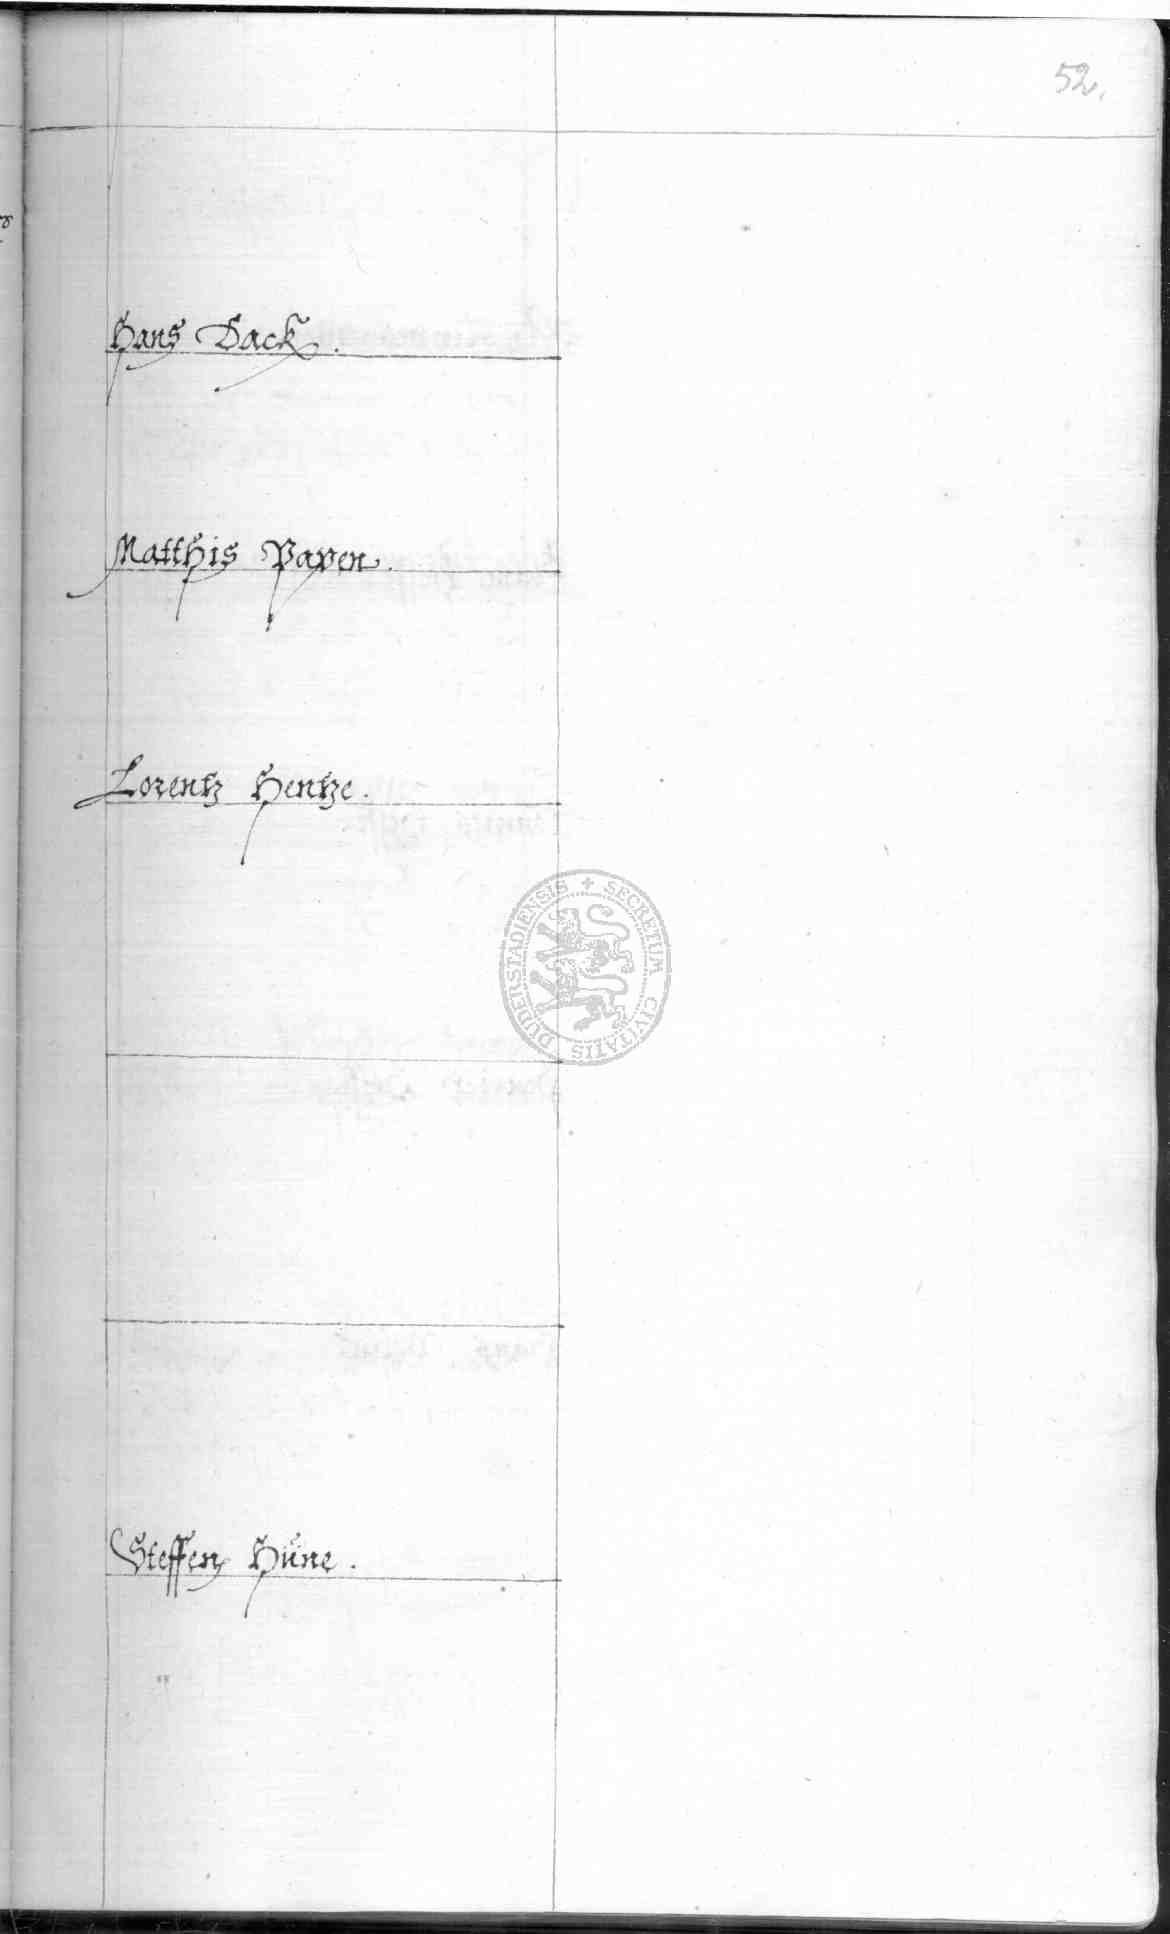 52.
Hans Dack.
Matthis Papen.
Lorentz Hentze.
SECRETUM CIVITATIS DUDERSTADIENSIS
Steffen Hüne.